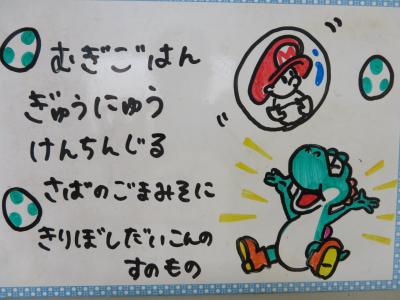 むぎごはん
ぎゅうにゅう
けんちんじる
さばのごまみそに
きりぼしだいこんの
すのもの
M